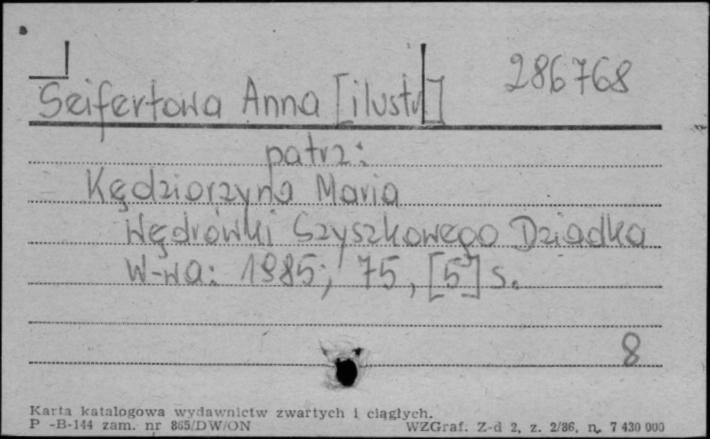 286768
Seifertowa Anna [ilustr]
patrz:
Kędziorzyna Maria
Wędrówki Szyszkowego Dziadka
W-wa: 1985; 75, [5] s.
8
Karta katalogowa wydawnictw zwartych i ciągłych.
P -B-144 zam. nr 865/DW/ON WZGraf. Z-d 2, z. 2/86, n. 7 430 000